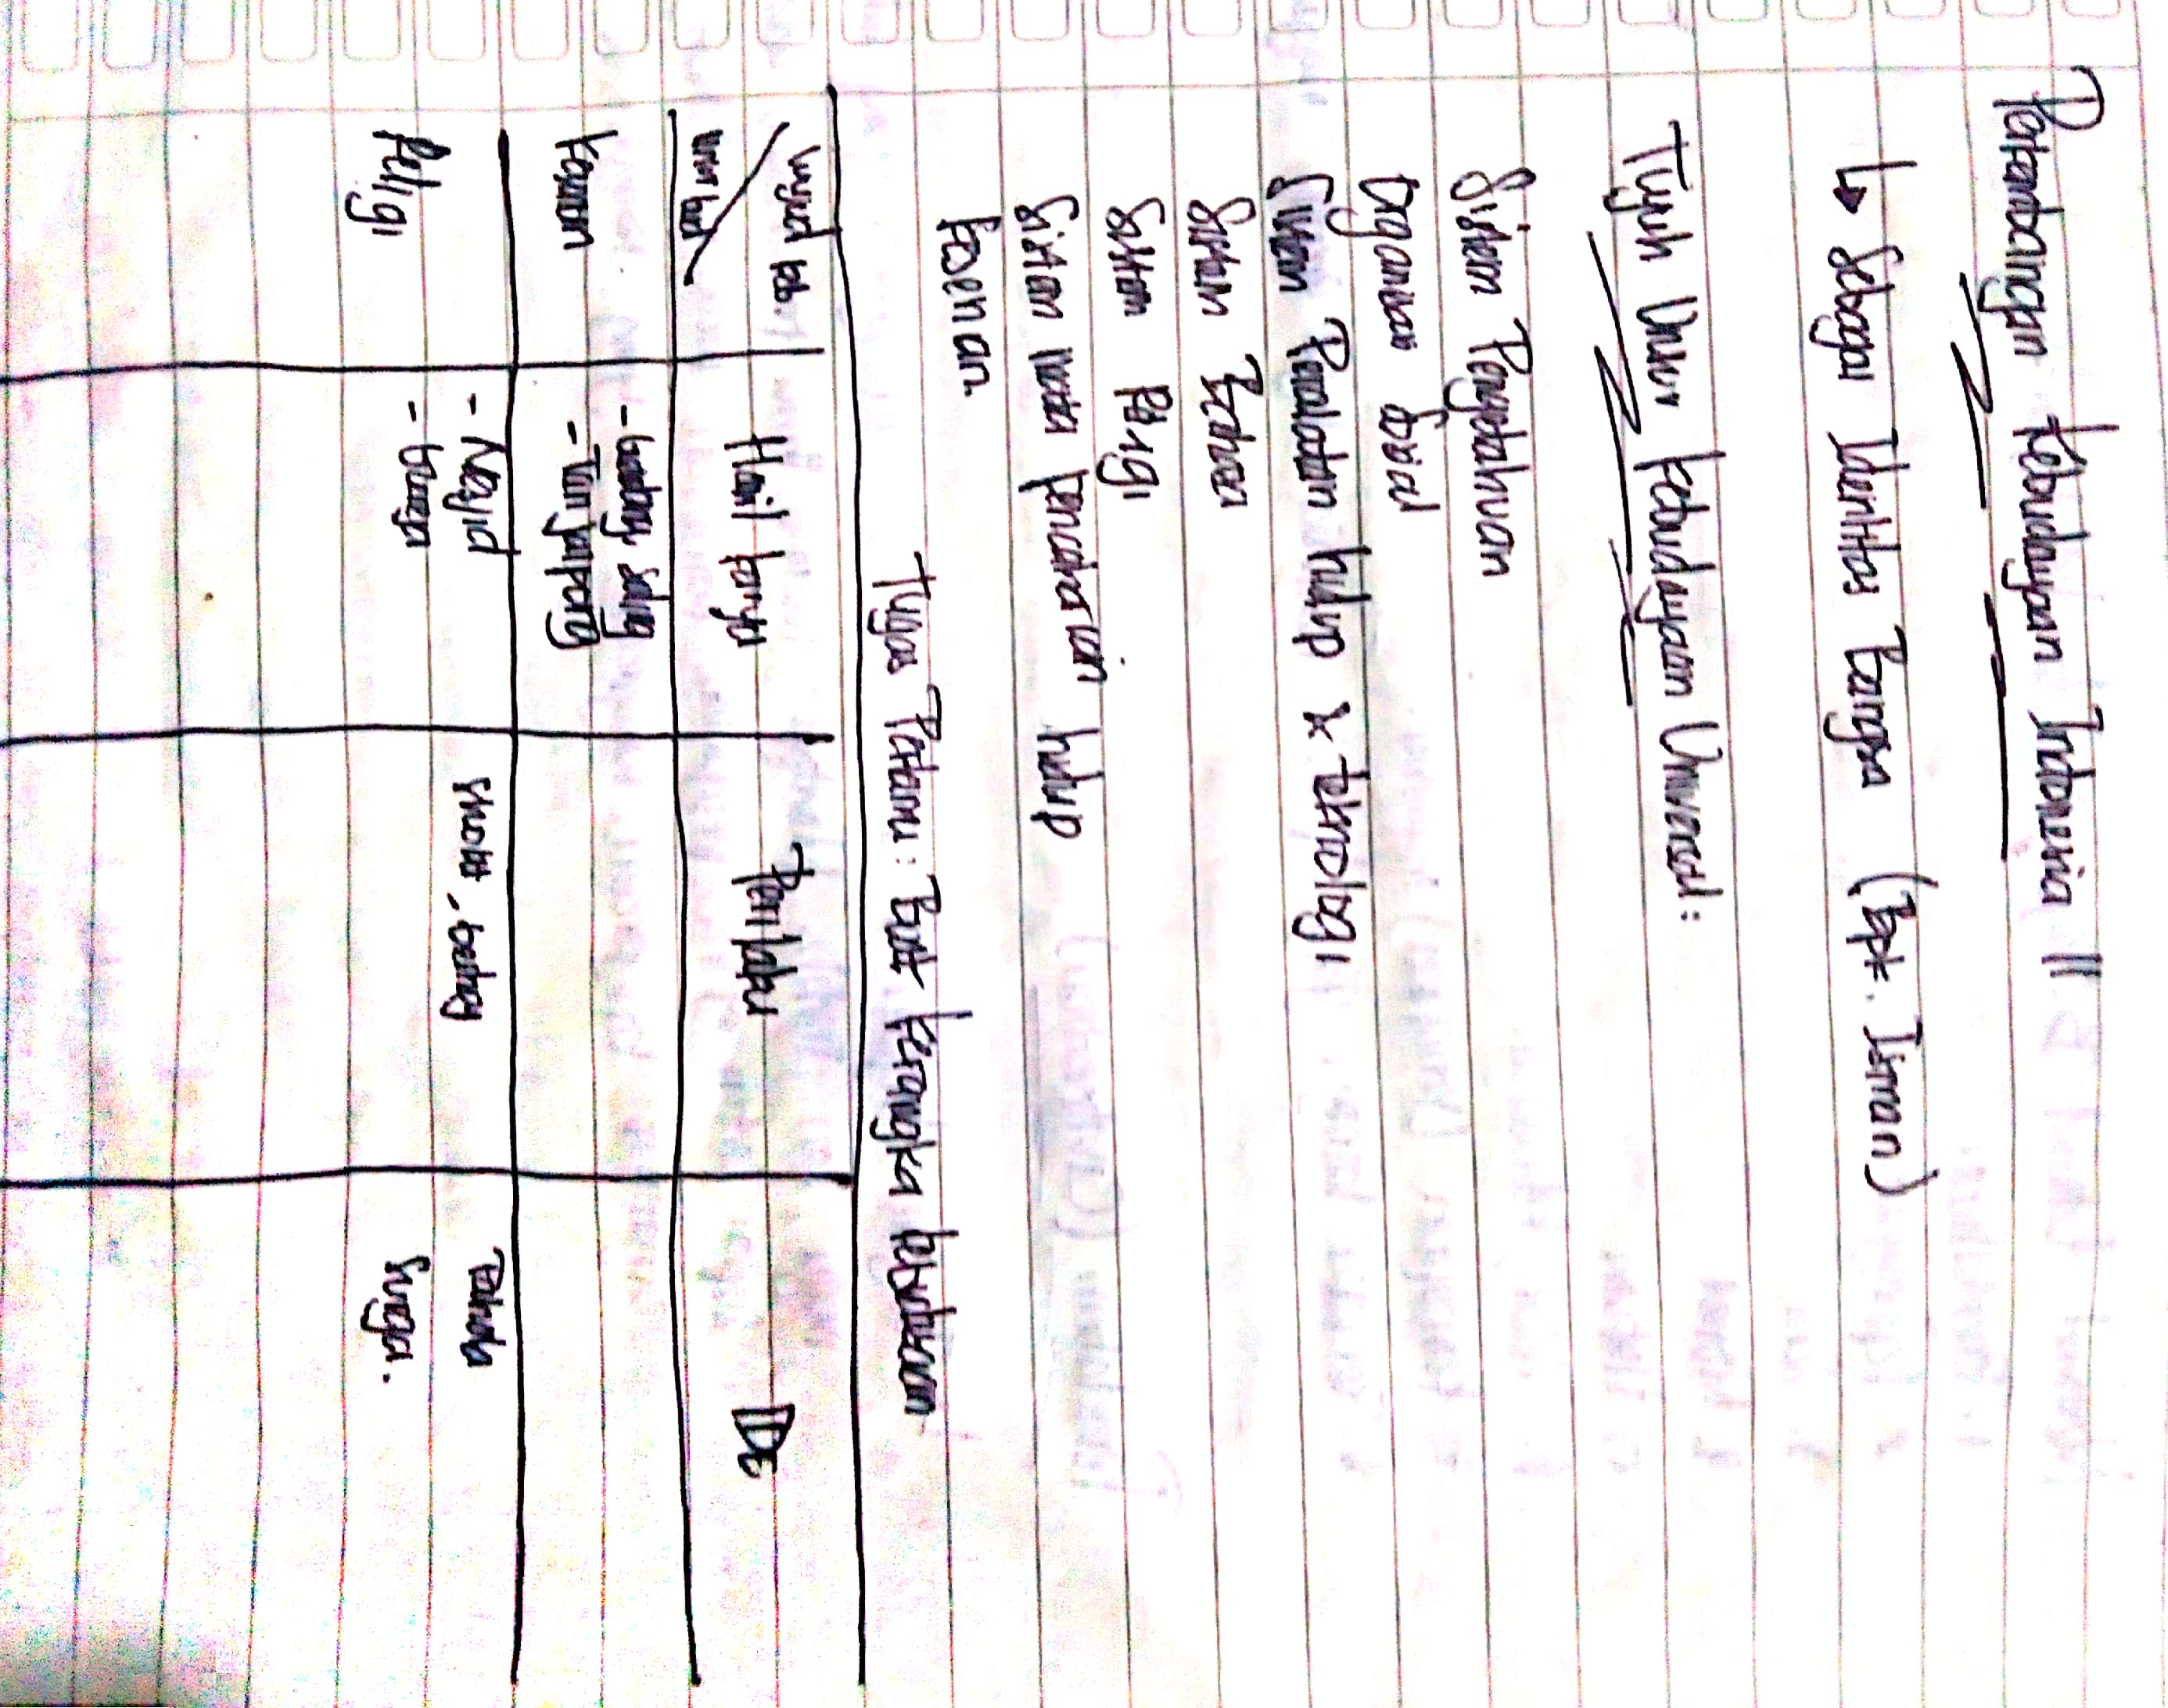 Perkembangan Kebudayaan Indonesia ||
↳ Sebagai Identitas Bangsa (Bpk. Isman)
Tujuh Unsur Kebudayaan Universal:
Sistem Pengetahuan
Organisasi Sosial
Sistem Peralatan hidup & teknologi
Sistem Bahasa
Sistem Religi
Sistem Mata Pencaharian hidup
Kesenian
Tugas Pertama: Buat kerangka kebudayaan
Wujud kb. Hasil karya Perilaku IDE
Unsur
Kesenian - Gendang
- Tari jaipong
Religi - Masjid Sholat, Tuhan
- Gereja Surga.